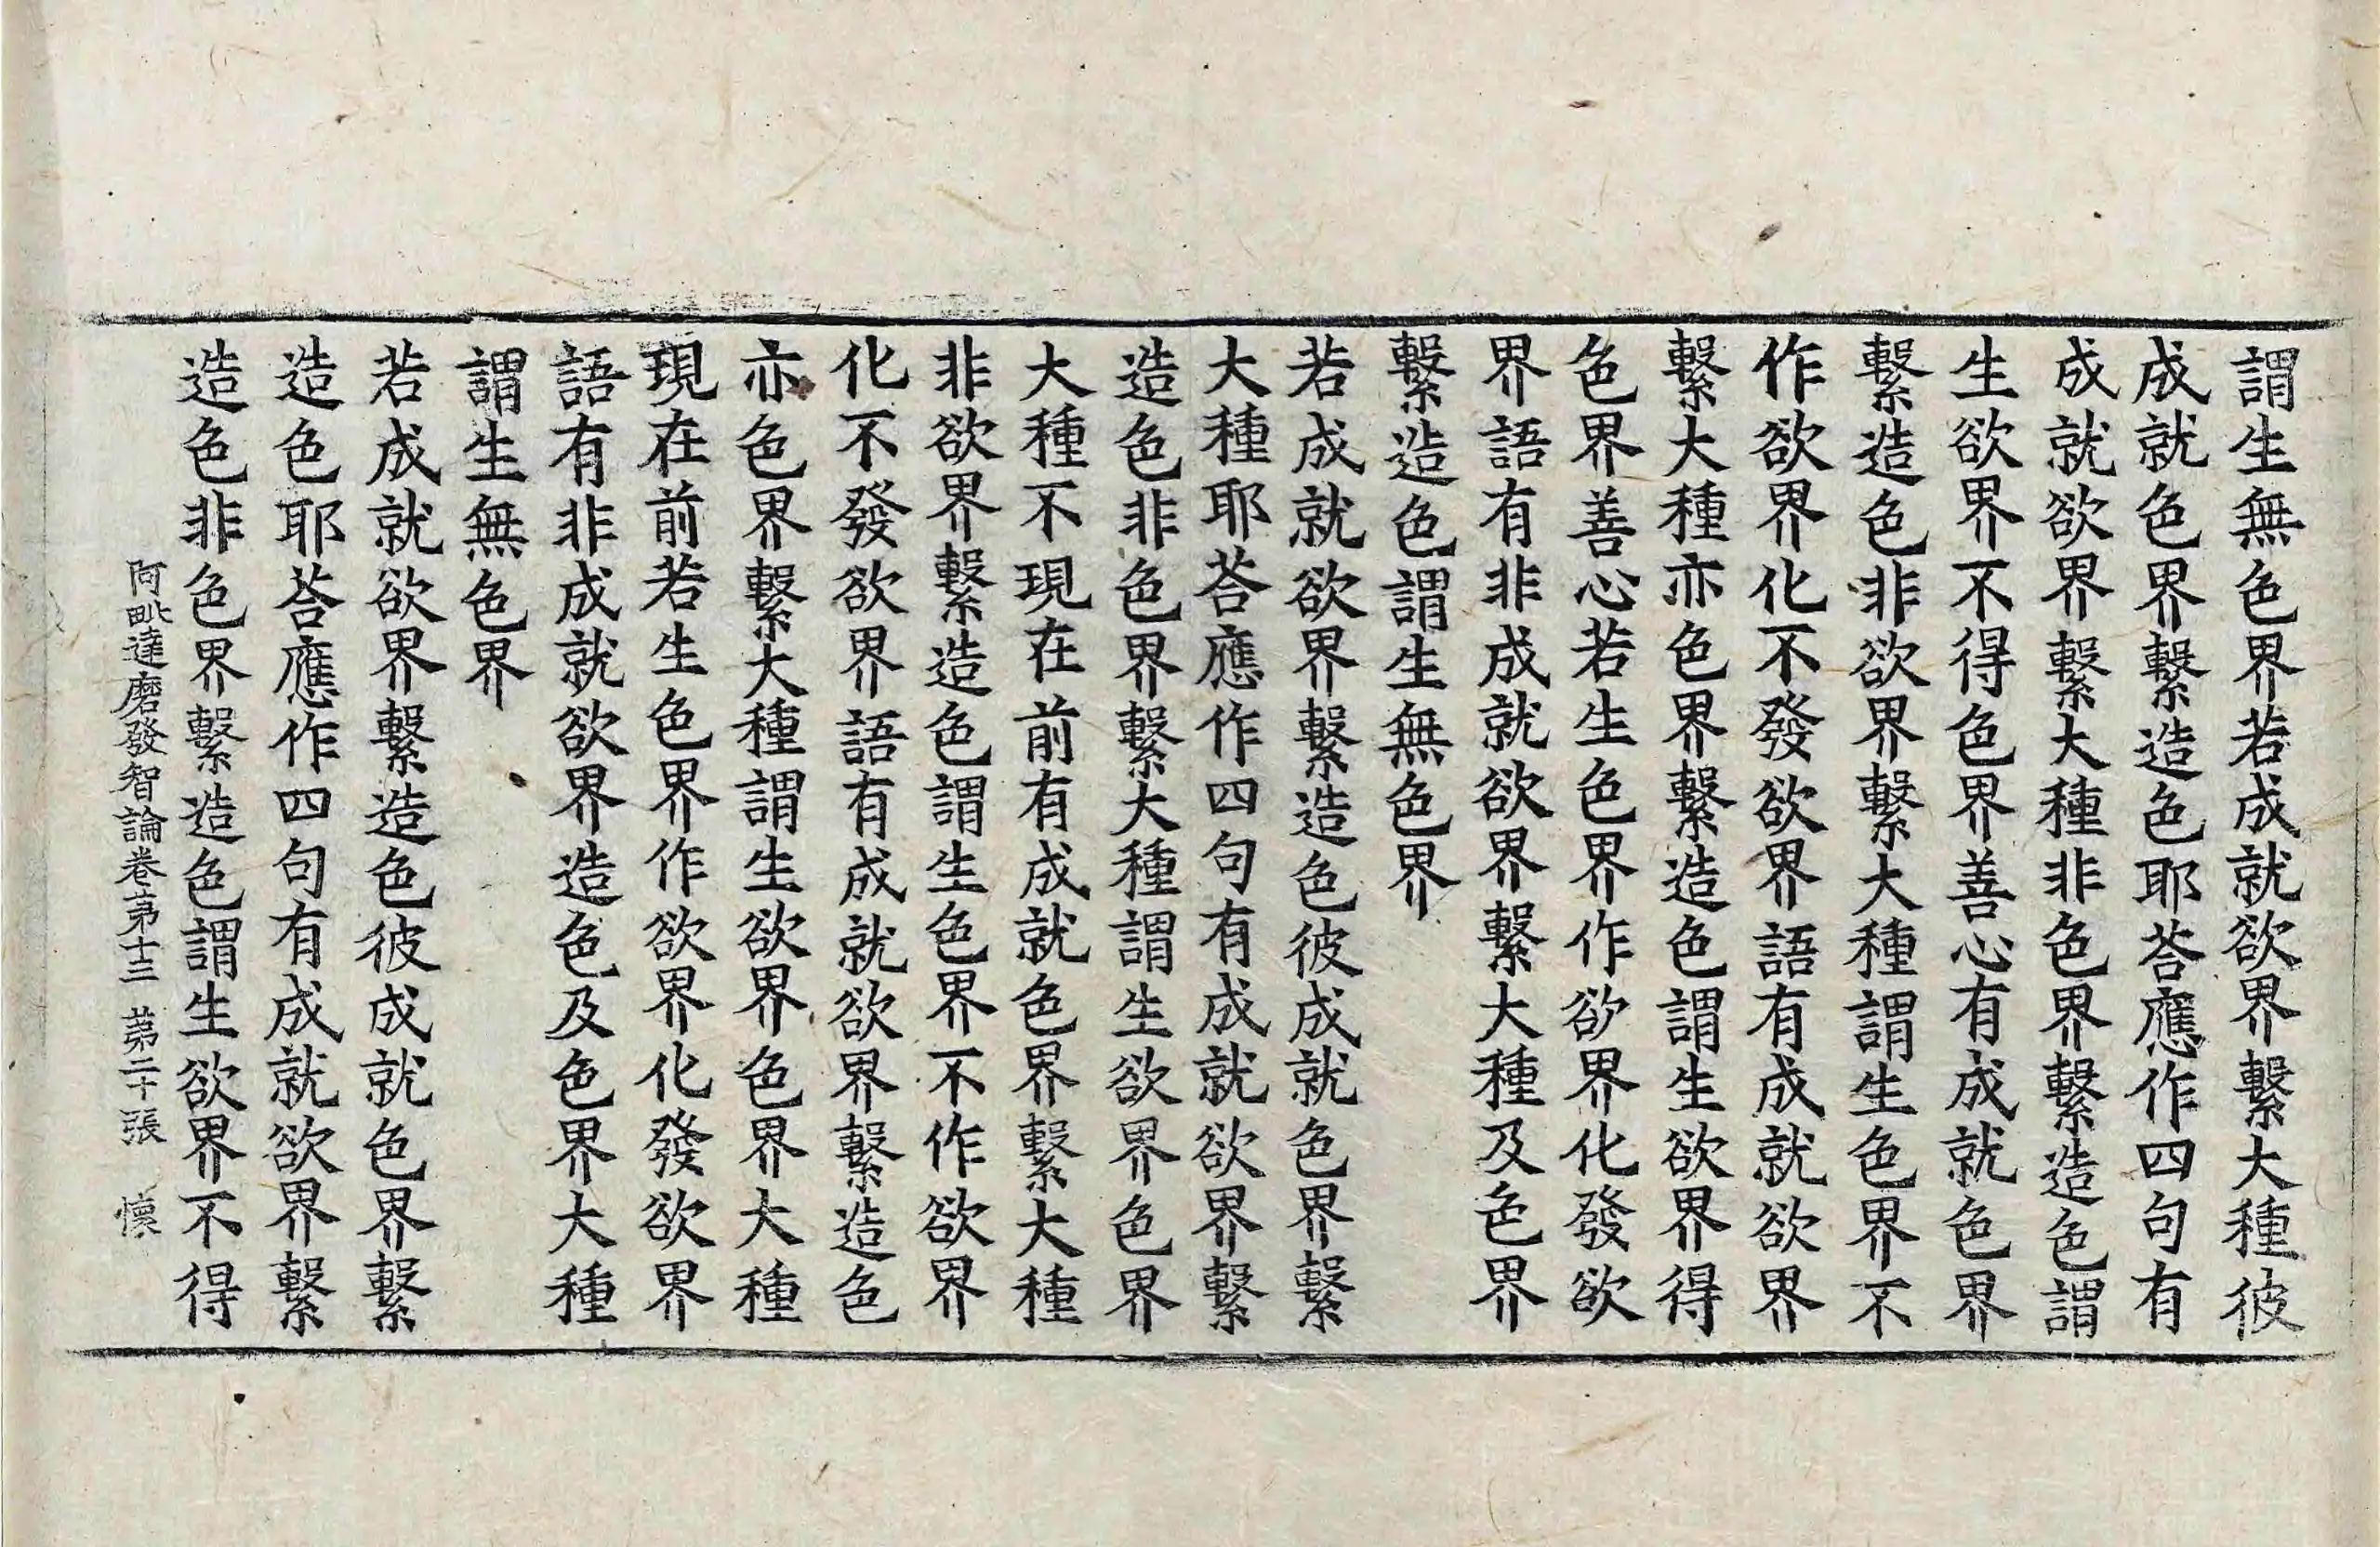 謂生無色界若成就欲界繫大種彼
成就色界繫造色耶荅應作四句有
成就欲界繫大種非色界繫造色謂
生欲界不得色界善心有成就色界
繫造色非欲界繫大種謂生色界不
作欲界化不發欲界語有成就欲界
繫大種亦色界繫造色謂生欲界得
色界善心若生色界作欲界化發欲
界語有非成就欲界繫大種及色界
繫造色謂生無色界
若成就欲界繫造色彼成就色界繫
大種耶荅應作四句有成就欲界繫
造色非色界繫大種謂生欲界色界
大種不現在前有成就色界繫大種
非欲界繫造色謂生色界不作欲界
化不發欲界語有成就欲界繫造色
亦色界繫大種謂生欲界色界大種
現在前若生色界作欲界化發欲界
語有非成就欲界造色及色界大種
謂生無色界
若成就欲界繫造色彼成就色界繫
造色耶荅應作四句有成就欲界繫
造色非色界繫造色謂生欲界不得
阿毗達磨發智論卷苐十三 苐二十張 懷